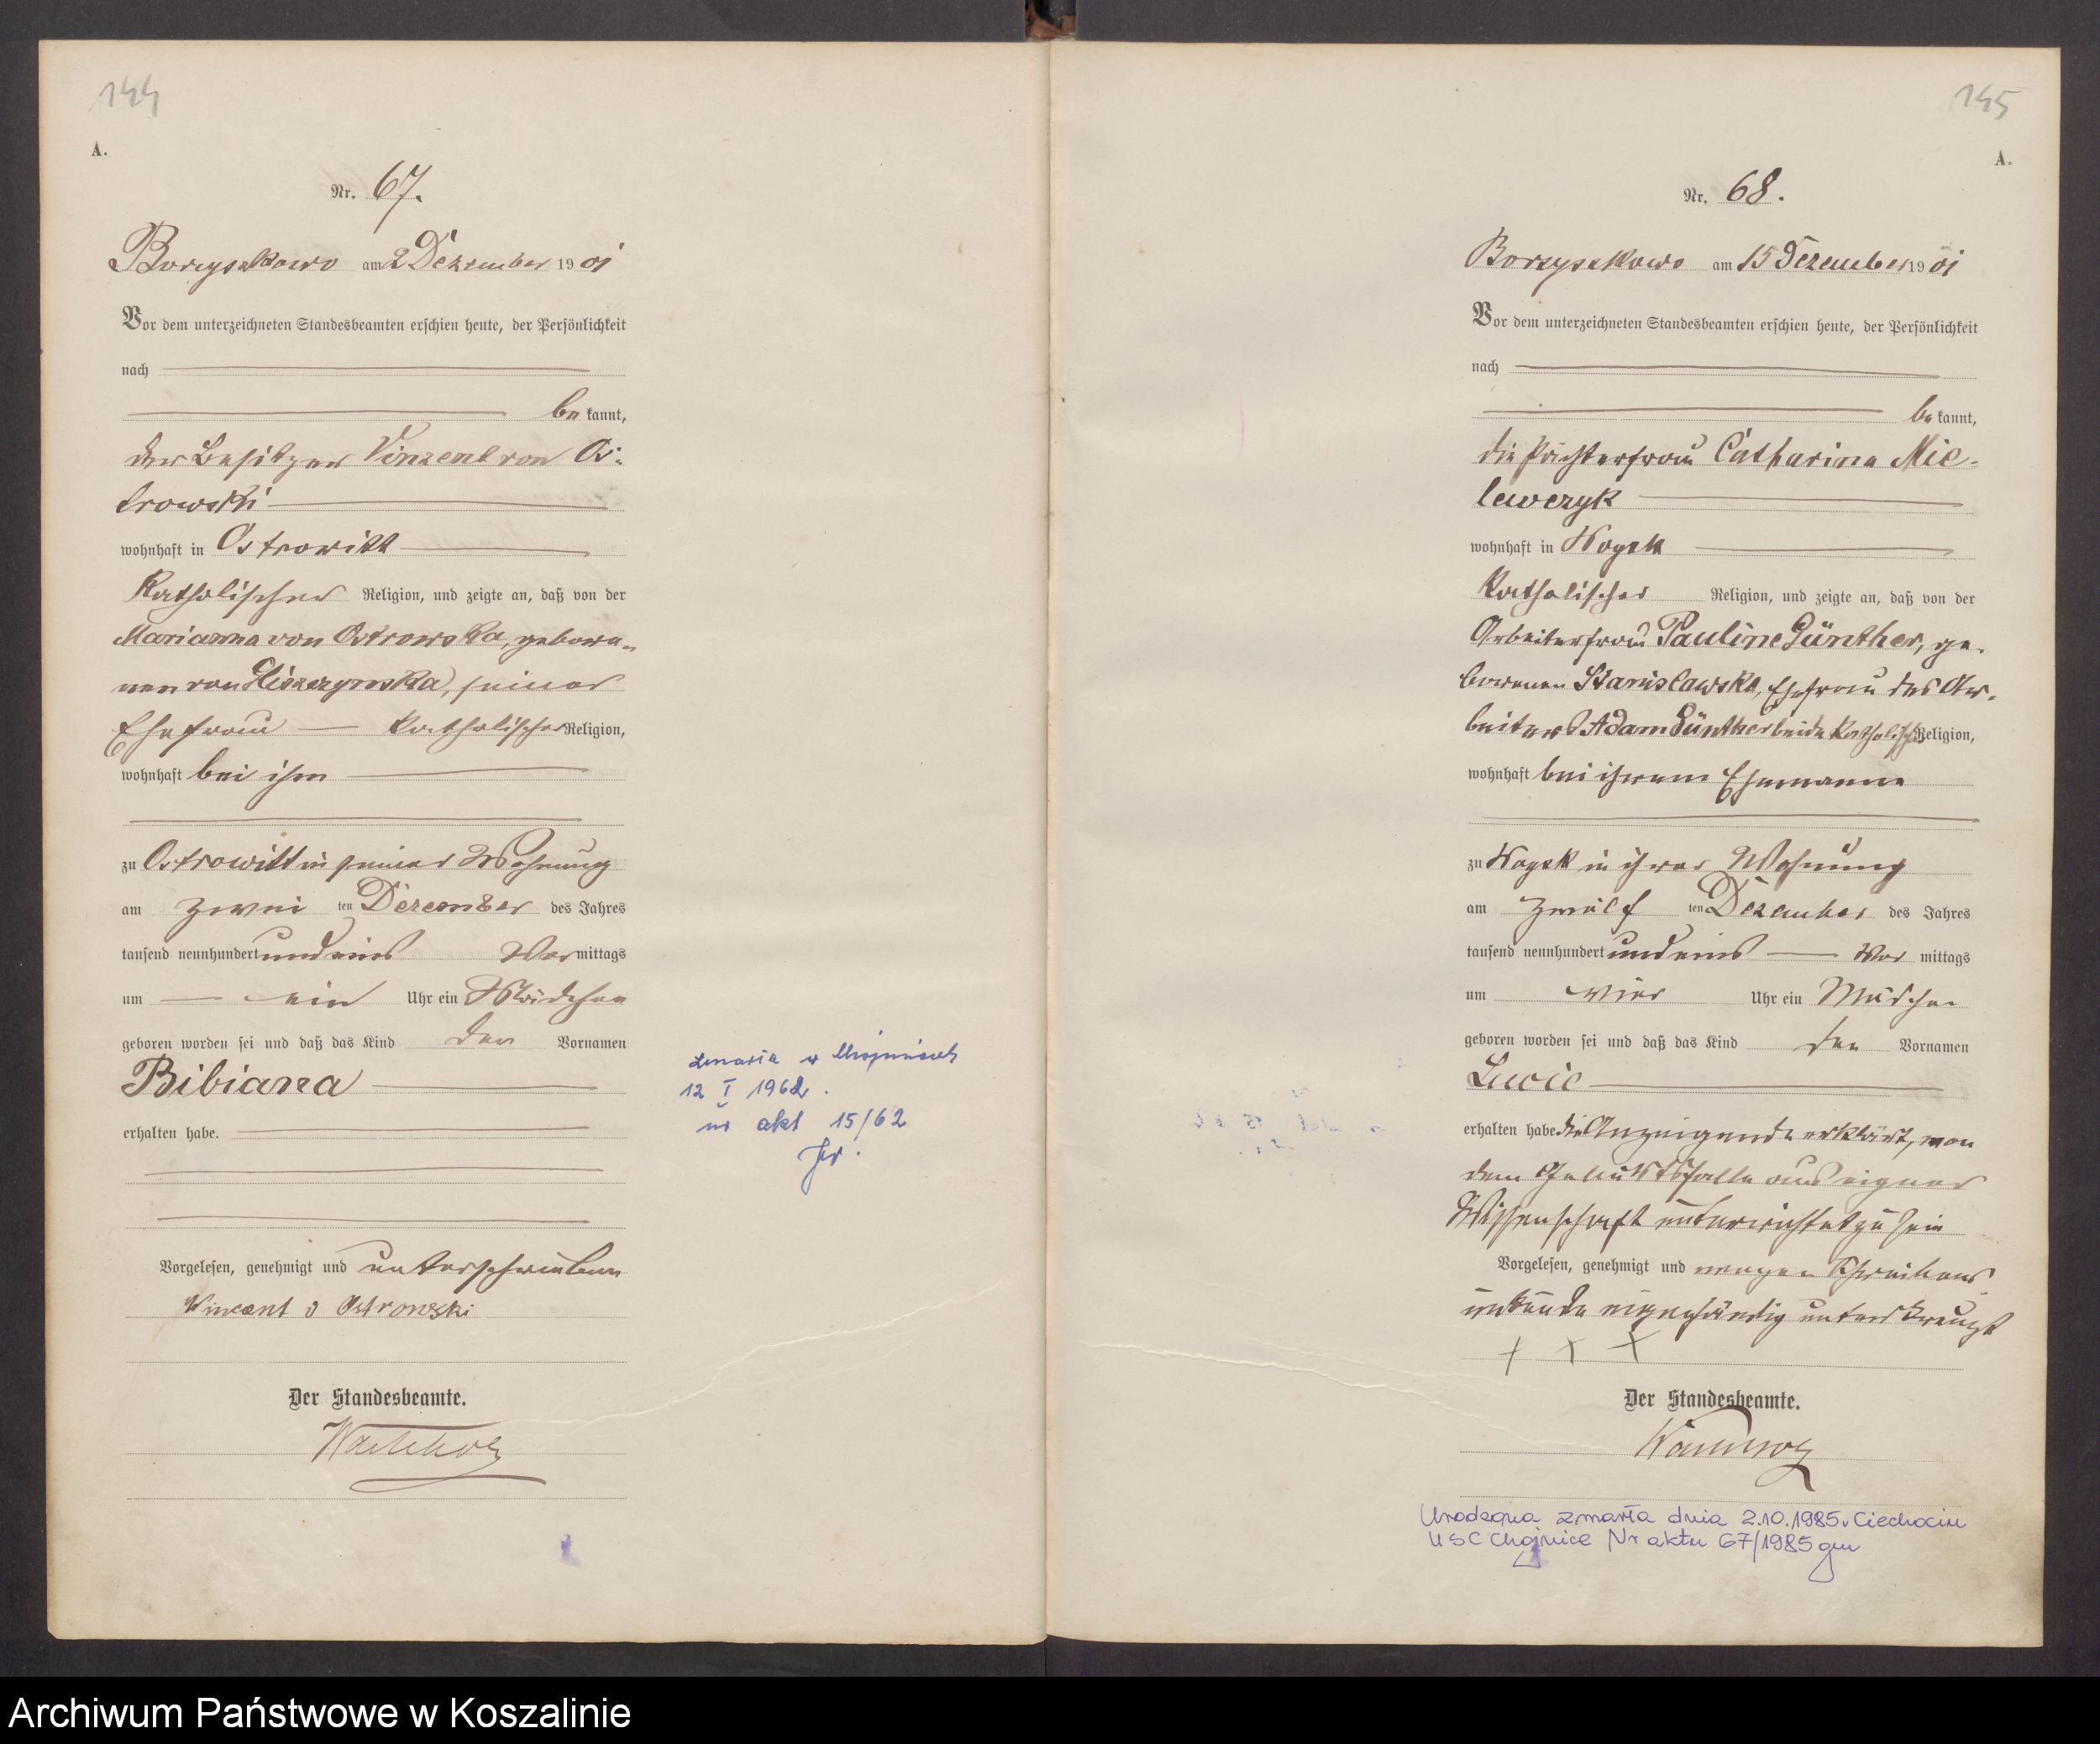 144
A.
Nr. 67.
Borzyszkowo am 2 Dezember 1901
Vor dem unterzeichneten Standesbeamten erschien heute, der Persönlichkeit
nach
bekannt,
der Besitzer Vinzent von Os-
trowski
wohnhaft in Ostrowitt
katholischer Religion, und zeigte an, daß von der
Marianna von Ostrowska, gebore-
nen von, seiner
Ehefrau katholischer Religion,
wohnhaft bei ihm
zu Ostrowitt in seiner Wohnung
am zweiten Dezember des Jahres
tausend neunhundert und eins Vormittags
um ein Uhr ein Mädchen
geboren worden sei und daß das Kind den Vornamen
Bibiana
erhalten habe.
Vorgelesen, genehmigt und unterschrieben
Vincent v Ostrowski
Der Standesbeamte.
zmarła w Chojnicach
12 I 1962.
nr akt 15/62
145
A.
Nr. 68.
Borzyszkowo am 15 Dezember 1901
Vor dem unterzeichneten Standesbeamten erschien heute, der Persönlichkeit
nach
bekannt,
die Pächterfrau Catharina Mie-
lewczyk
wohnhaft in Wogsk
katholischer Religion, und zeigte an, daß von der
Arbeiterfrau Pauline Günther, ge-
borenen Stanislawska, Ehefrau des Ar-
beiters Adam Günther beide katholisch Religion,
wohnhaft bei ihrem Ehemanne
zu Wogsk in ihrer Wohnung
am zwölften Dezember des Jahres
tausend neunhundert und eins Vormittags
um vier Uhr ein Mädchen
geboren worden sei und daß das Kind den Vornamen
Lucie
erhalten habe. die Anzeigende erklärt, von
dem Geburtsfalle aus eigner
Wissenschaft unterrichtet zu sein
Vorgelesen, genehmigt und wegen Schreibens
unkunde eigenhändig unterkreuzt
+ + +
Der Standesbeamte.
Urodzona zmarła dnia 2.10.1985. Ciechocin
USC Chojnice Nr aktu 67/1985
Archiwum Państwowe w Koszalinie